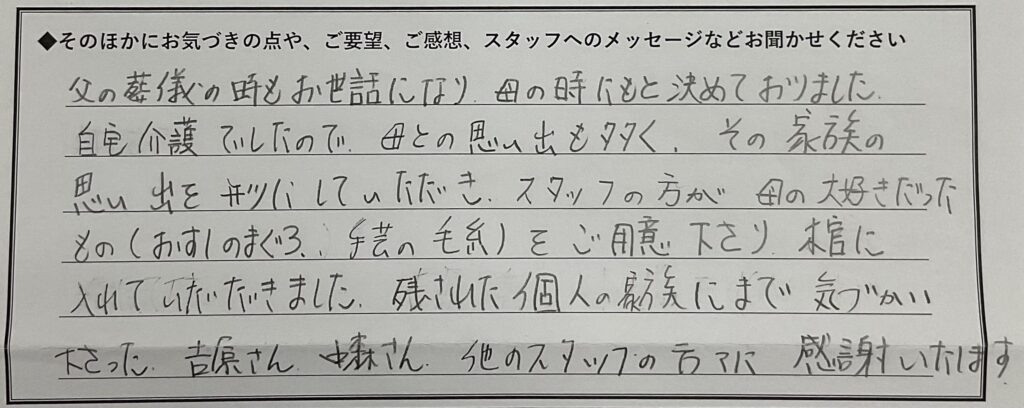 ◆そのほかにお気づきの点や、ご要望、ご感想、スタッフへのメッセージなどお聞かせください
父の葬儀の時もお世話になり、母の時にもと決めておりました。
自宅介護でしたので、母との思い出も多く、その家族の
思い出を形にしていただき、スタッフの方が母の大好きだった
もの(おすしのまぐろ、、手芸の毛糸)をご用意下さり、棺に
入れていただだきました。残された個人の家族にまで気づかい
下さった、吉原さん、中森さん、他のスタッフの方々に感謝いたします